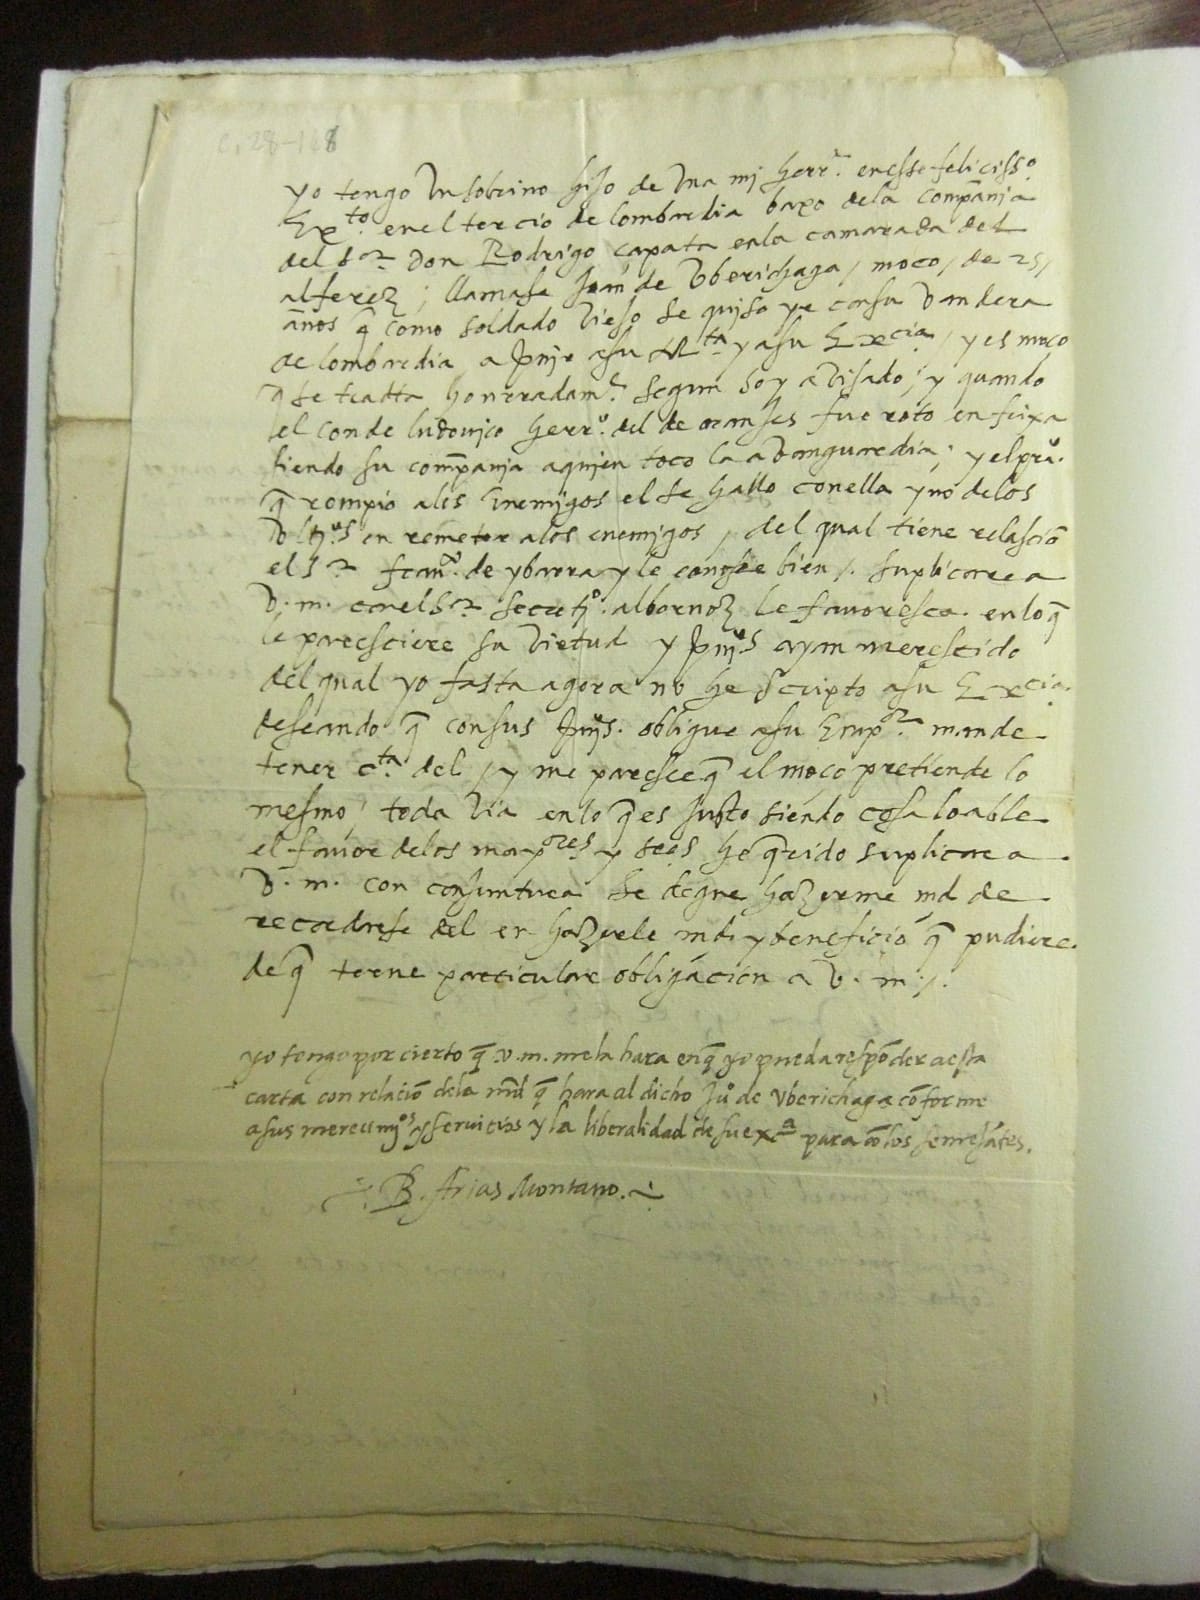 c. 28-168
yo tengo Un sobrino hijo de Una mj herr.ª en esse felicisso.
Exto. en el tercio de lombardia baxo dela Compañia
del s.or Don Rodrigo çapata enla camarada del
alferez ; llamase Joan de Vberichaga / moço / de 25 /
años q̃ como soldado Viejo se quiso yr con su Vandera
de lombardia a ſuyr asu M.ta y asu Excia / y es moço
q̃ se tratta honrradam.te segun soy aVisado ; y quando
el Conde ludovico herr.º del de oranjes fue roto en frixa
siendo su compañia aquien toco la aVanguardia ; y el prº.
q̃ rompio alos Enemigos el se hallo conella y no delos
Vltjºs en remeter alos enemigos , del qual tiene relasciõ
el S.or franco. de ybarra y le conosçe bien /. suplicarea
V. m. con el S.or Secretjº. albornoz le favoresca. en lo q̃
le paresciere su Virtud y ſuiçºs ayan merescido
del qual yo fasta agora no he scripto asu Excia.
deseando q̃ consus ſuiçºs. obligue asu Supor. mande
tener cta. del / y me paresce q̃ el moço pretiende lo
mesmo toda Via en lo q̃ es Justo siendo cosa loable
el favor delos mayores y sres he q̃rido suplicar a
V. m. con conjuntura se digne hazerme md de
recordarse del en hazerle md. y beneficio q̃ pudiere.
de q̃ terne particular obligacion a V. m. /.
yo tengo por cierto q̃ .v.m. me la hara en q̃ yo pueda respõder a esta
carta con relaciõ dela md q̃ hara al dicho Juº de Vberichaga cõforme
asus merecimjºs y seruicios y la liberalidad de su exca para cõ los semejãtes.
B. Arias Montano.